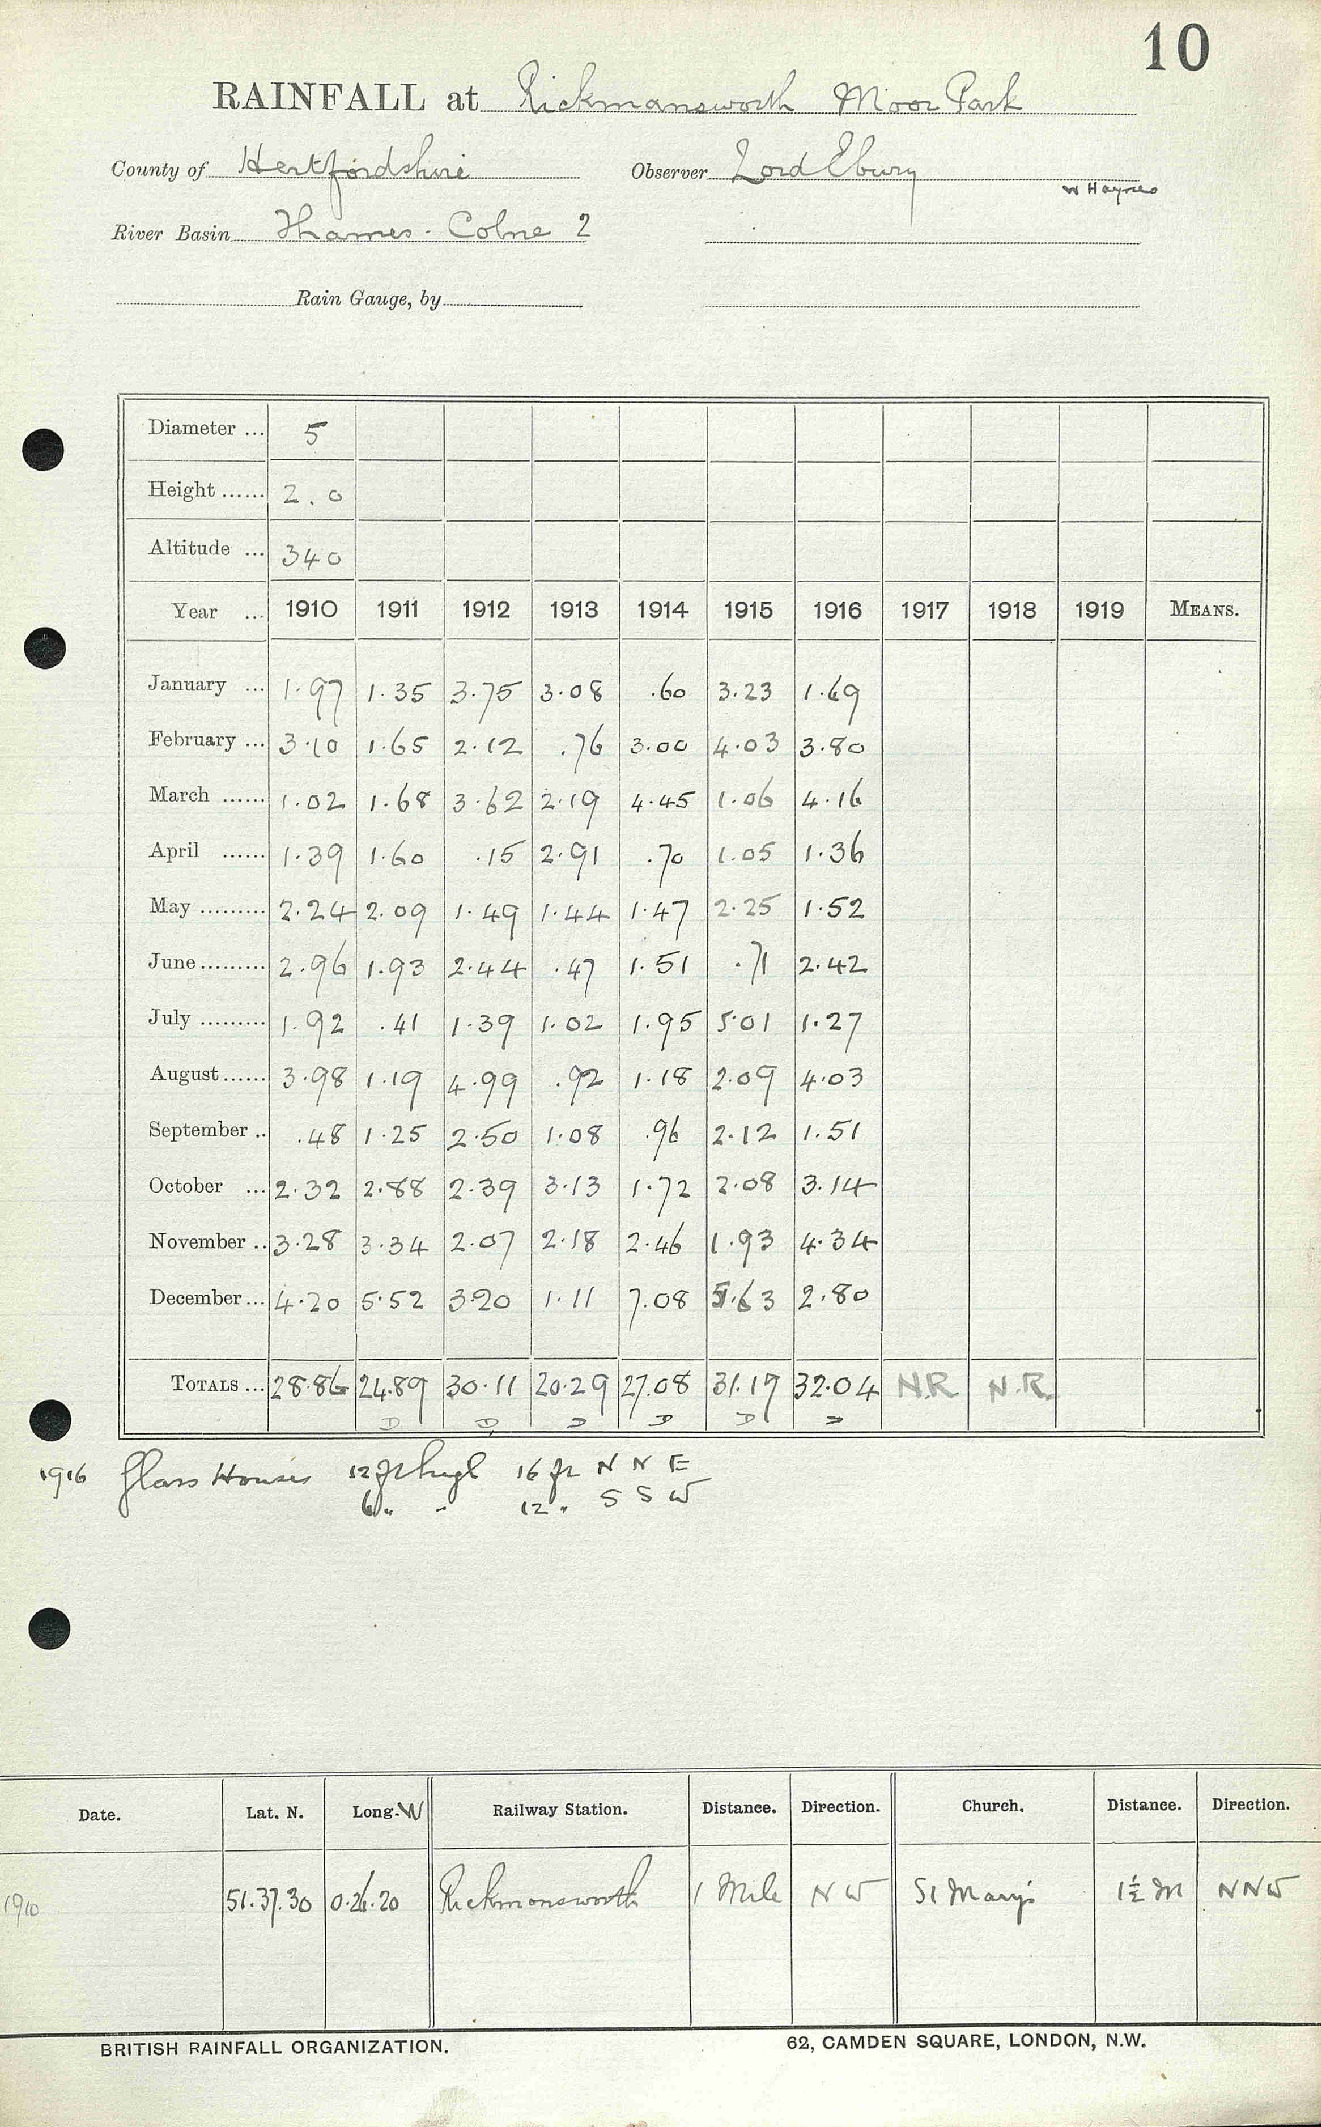 10
RAINFALL at Rickmansworth Moor Park
County of Hertfordshire Observer Lord Ebury
W Haynes
River Basin Thames - Colne 2
Rain Gauge, by
Diameter ... 5
Height ...... 2.0
Altitude ... 340
Year ... 1910 1911 1912 1913 1914 1915 1916 1917 1918 1919 MEANS.
January ... 1.97 1.35 3.75 3.08 .60 3.23 1.69
February ... 3.10 1.65 2.12 .76 3.00 4.03 3.80
March ...... 1.02 1.68 3.62 2.19 4.45 1.06 4.16
April ...... 1.39 1.60 .15 2.91 .70 1.05 1.36
May ......... 2.24 2.09 1.49 1.44 1.47 2.25 1.52
June ......... 2.96 1.93 2.44 .47 1.51 .71 2.42
July ......... 1.92 .41 1.39 1.02 1.95 5.01 1.27
August ...... 3.98 1.19 4.99 .92 1.18 2.09 4.03
September .. .48 1.25 2.50 1.08 .96 2.12 1.51
October ... 2.32 2.88 2.39 3.13 1.72 2.08 3.14
November .. 3.28 3.34 2.07 2.18 2.46 1.93 4.34
December ... 4.20 5.52 3.20 1.11 7.08 5.63 2.80
TOTALS ... 28.86 24.89 30.11 20.29 27.08 31.19 32.04 N.R. N.R.
D D D D D D
1916 Glass Houses 12 ft high 16 ft N N E
6 " " 12 " S S W
Date. Lat. N. Long. W Railway Station. Distance. Direction. Church. Distance. Direction.
1910 51.37.30 0.26.20 Rickmansworth 1 Mile NW St Mary's 1½ M NNW
BRITISH RAINFALL ORGANIZATION. 62, CAMDEN SQUARE, LONDON, N.W.